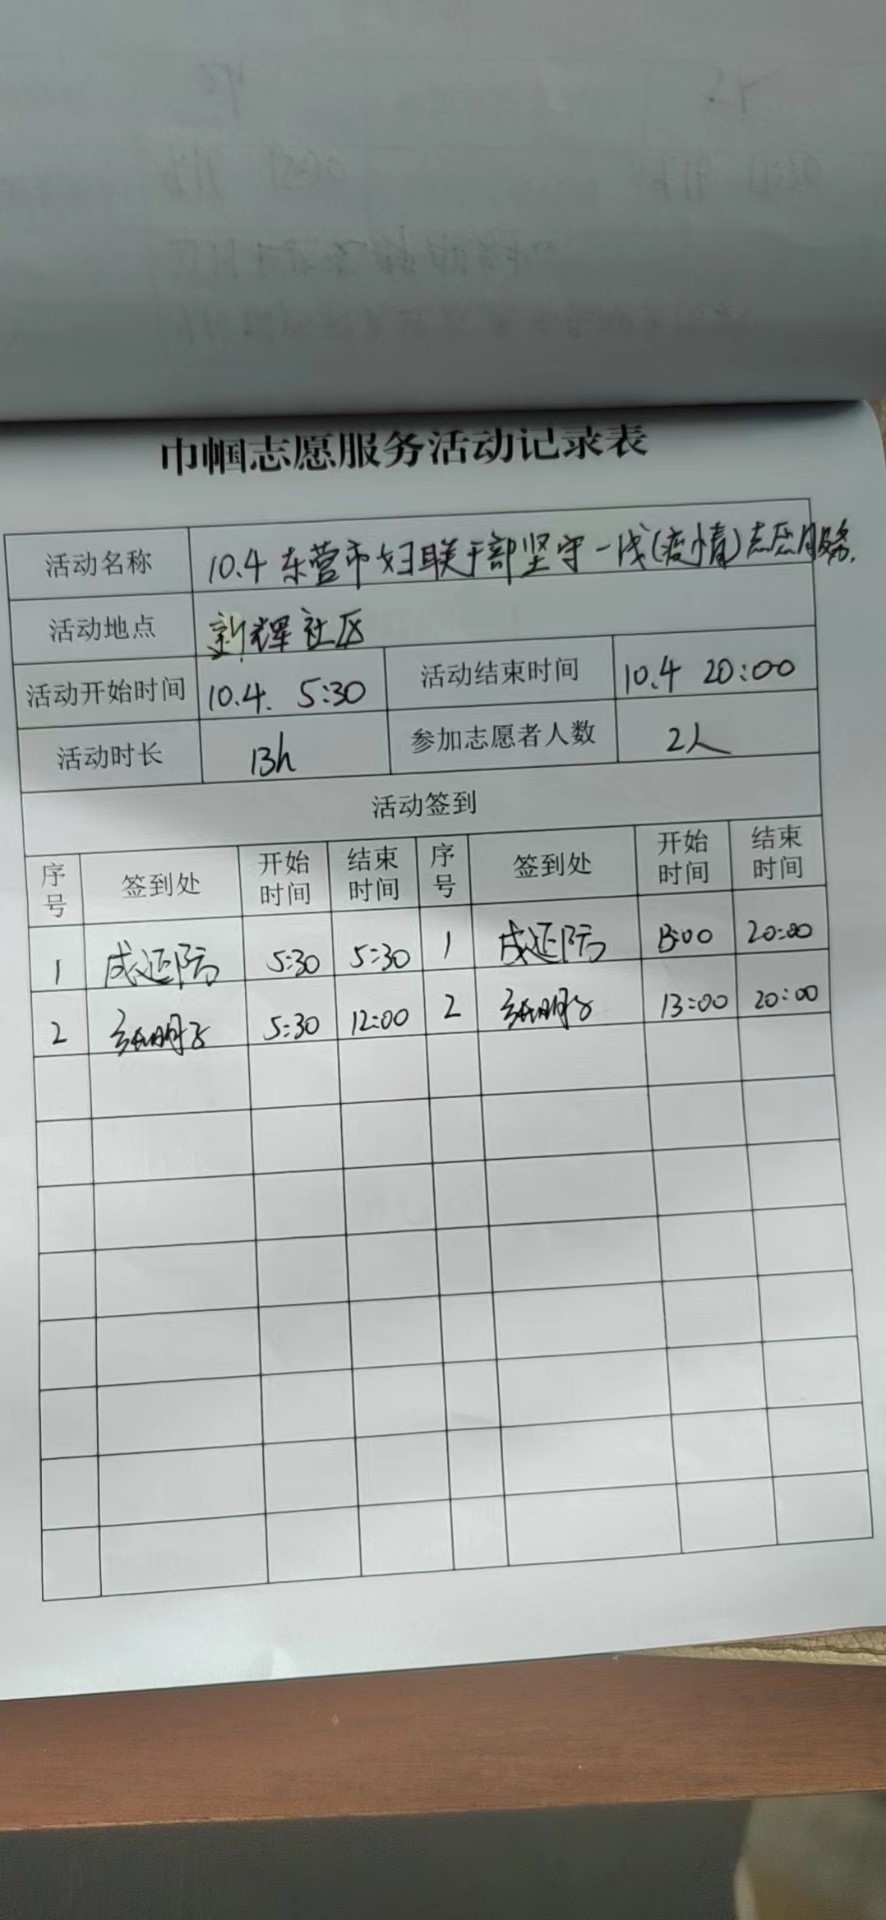 巾帼志愿服务活动记录表
活动名称 10.4 东营市妇联干部坚守一线(疫情)志愿服务.
活动地点 新辉社区
活动开始时间 10.4. 5:30 活动结束时间 10.4 20:00
活动时长 13h 参加志愿者人数 2人
活动签到
序号 签到处 开始时间 结束时间 序号 签到处 开始时间 结束时间
1 5:30 5:30 1 13:00 20:00
2 5:30 12:00 2 13:00 20:00